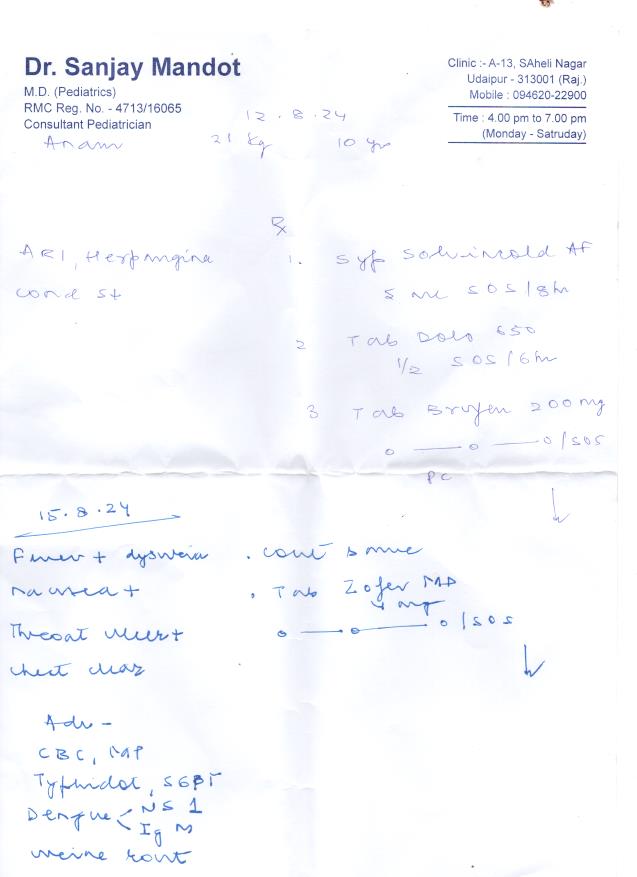 Dr. Sanjay Mandot
M.D. (Pediatrics)
RMC Reg. No. - 4713/16065
Consultant Pediatrician
Clinic :- A-13, SAheli Nagar
Udaipur - 313001 (Raj.)
Mobile : 094620-22900
Time : 4.00 pm to 7.00 pm
(Monday - Satruday)
12.8.24
21 kg 10 yr
℞
ARI, Herpangina
1. Syp Solvincold AF
5 ml SOS/8hr
2 Tab Dolo 650
1/2 SOS/6hr
3 Tab Brufen 200mg
o — o — o/SOS
PC
15.8.24
Fever + dysuria . cont same
nausea + . Tab Zofer MD
4 mg
Throat ulcer+ o — o — o/SOS
chest clear
Adv -
CBC, MP
Typhidot, SGPT
Dengue < NS 1
IgM
urine rout